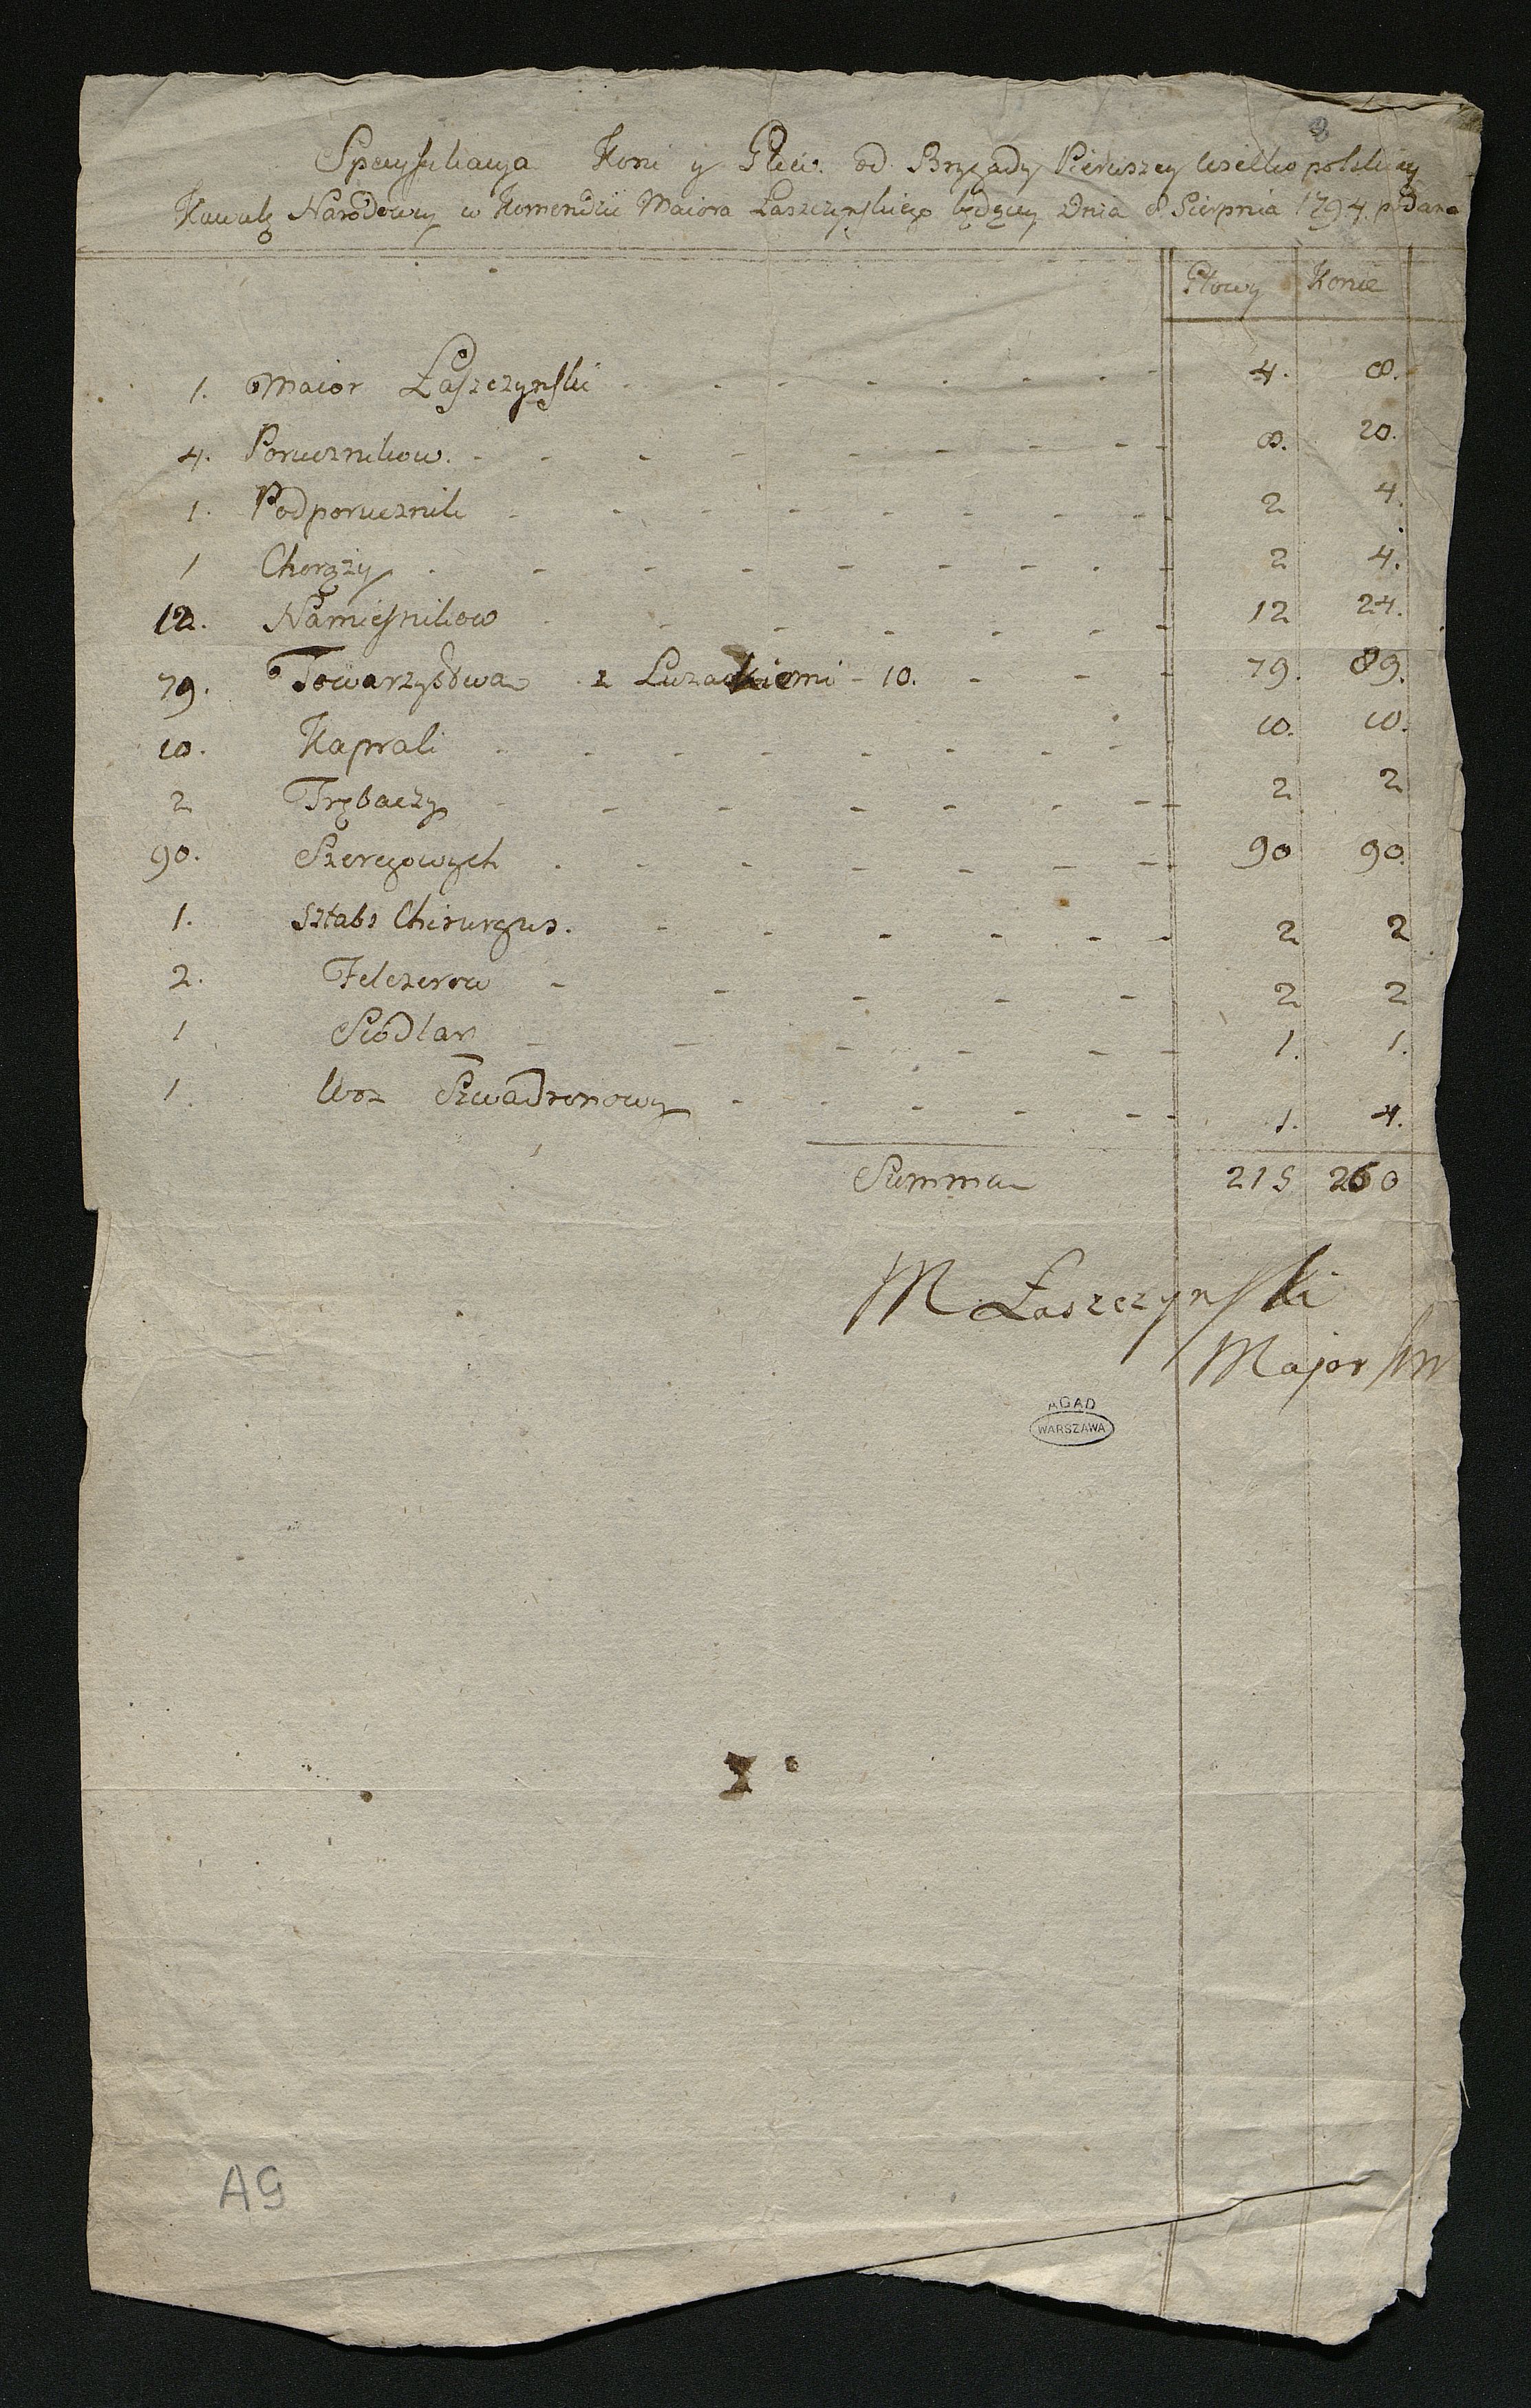 Specyfikacya Koni y Głów od Brygady Pierwszey Wielko polskiey
Kawale Narodowey w Komendzie Maiora Łaszczyńskiego będącey Dnia 8 Sierpnia 1794 podana
Głowy Konie
1. Maior Łaszczyński - - - - - - - 4. 8.
4. Poruczników. - - - - - - - 8. 20.
1. Podporucznik - - - - - - - 2 4.
1 Chorąży - - - - - - - 2 4.
12. Namiesnikow - - - - - - 12 24.
79. Towarzystwa z Luzackiemi - 10. - - - 79. 89.
10. Kaprali - - - - - - - 10. 10.
2 Trębaczy - - - - - - - 2 2
90. Szeregowych - - - - - - - 90 90.
1. Sztabs Chirurgus. - - - - - - 2 2
2. Felczerow - - - - - 2 2
1 Siodlar - - - - - - 1. 1.
1. Woz Szwadronowy - - - - - - 1. 4.
Summa 215 260
M Łaszczyński
Major
AGAD
WARSZAWA
AG